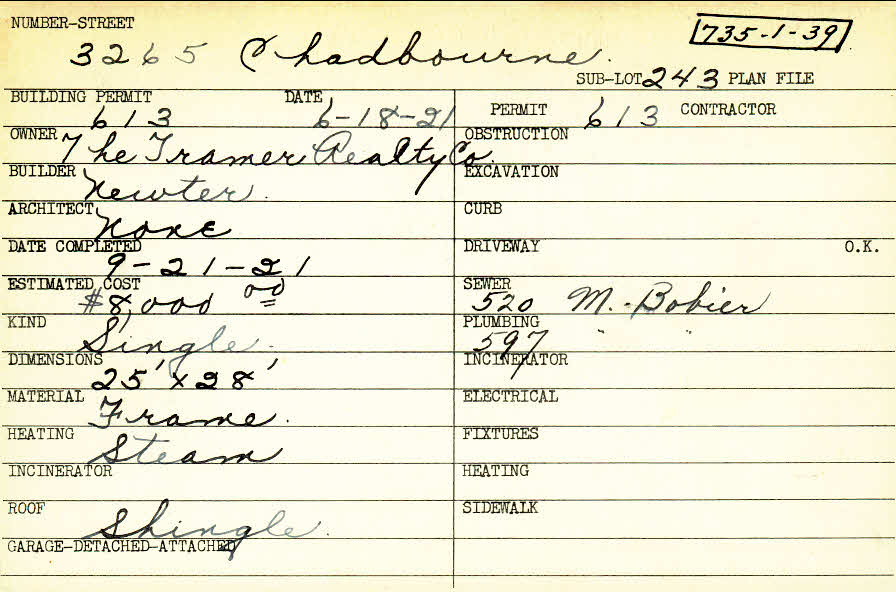 NUMBER-STREET
735-1-39
3265 Chadbourne.
SUB-LOT 243 PLAN FILE
BUILDING PERMIT DATE
613 6-18-21
PERMIT 613 CONTRACTOR
OWNER The Tramer Realty Co.
OBSTRUCTION
BUILDER Newter.
EXCAVATION
ARCHITECT None
CURB
DATE COMPLETED
9-21-21
DRIVEWAY O.K.
ESTIMATED COST
$8,000 00
SEWER
520 M. Bobier
KIND Single.
PLUMBING
597 " "
DIMENSIONS
25' x 28'
INCINERATOR
MATERIAL Frame.
ELECTRICAL
HEATING Steam
FIXTURES
INCINERATOR
HEATING
ROOF Shingle.
SIDEWALK
GARAGE-DETACHED-ATTACHED